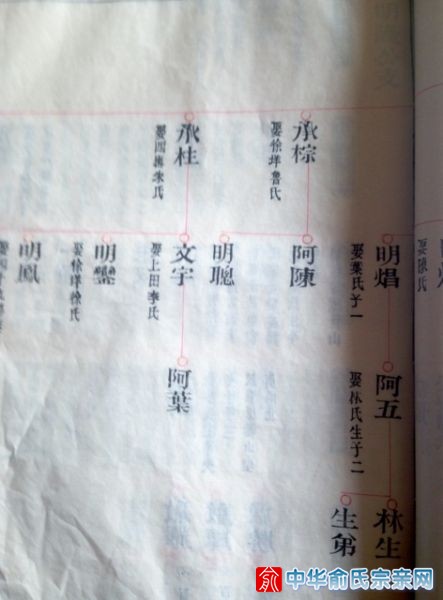 承棕
娶徐垟魯氏
承桂
娶陳氏
明焻
娶葉氏子一
阿陳
明聰
文宇
娶上田李氏
明鑾
娶徐垟徐氏
明鳳
阿五
娶林氏生子二
阿葉
林生
生弟
俞 中华俞氏宗亲网